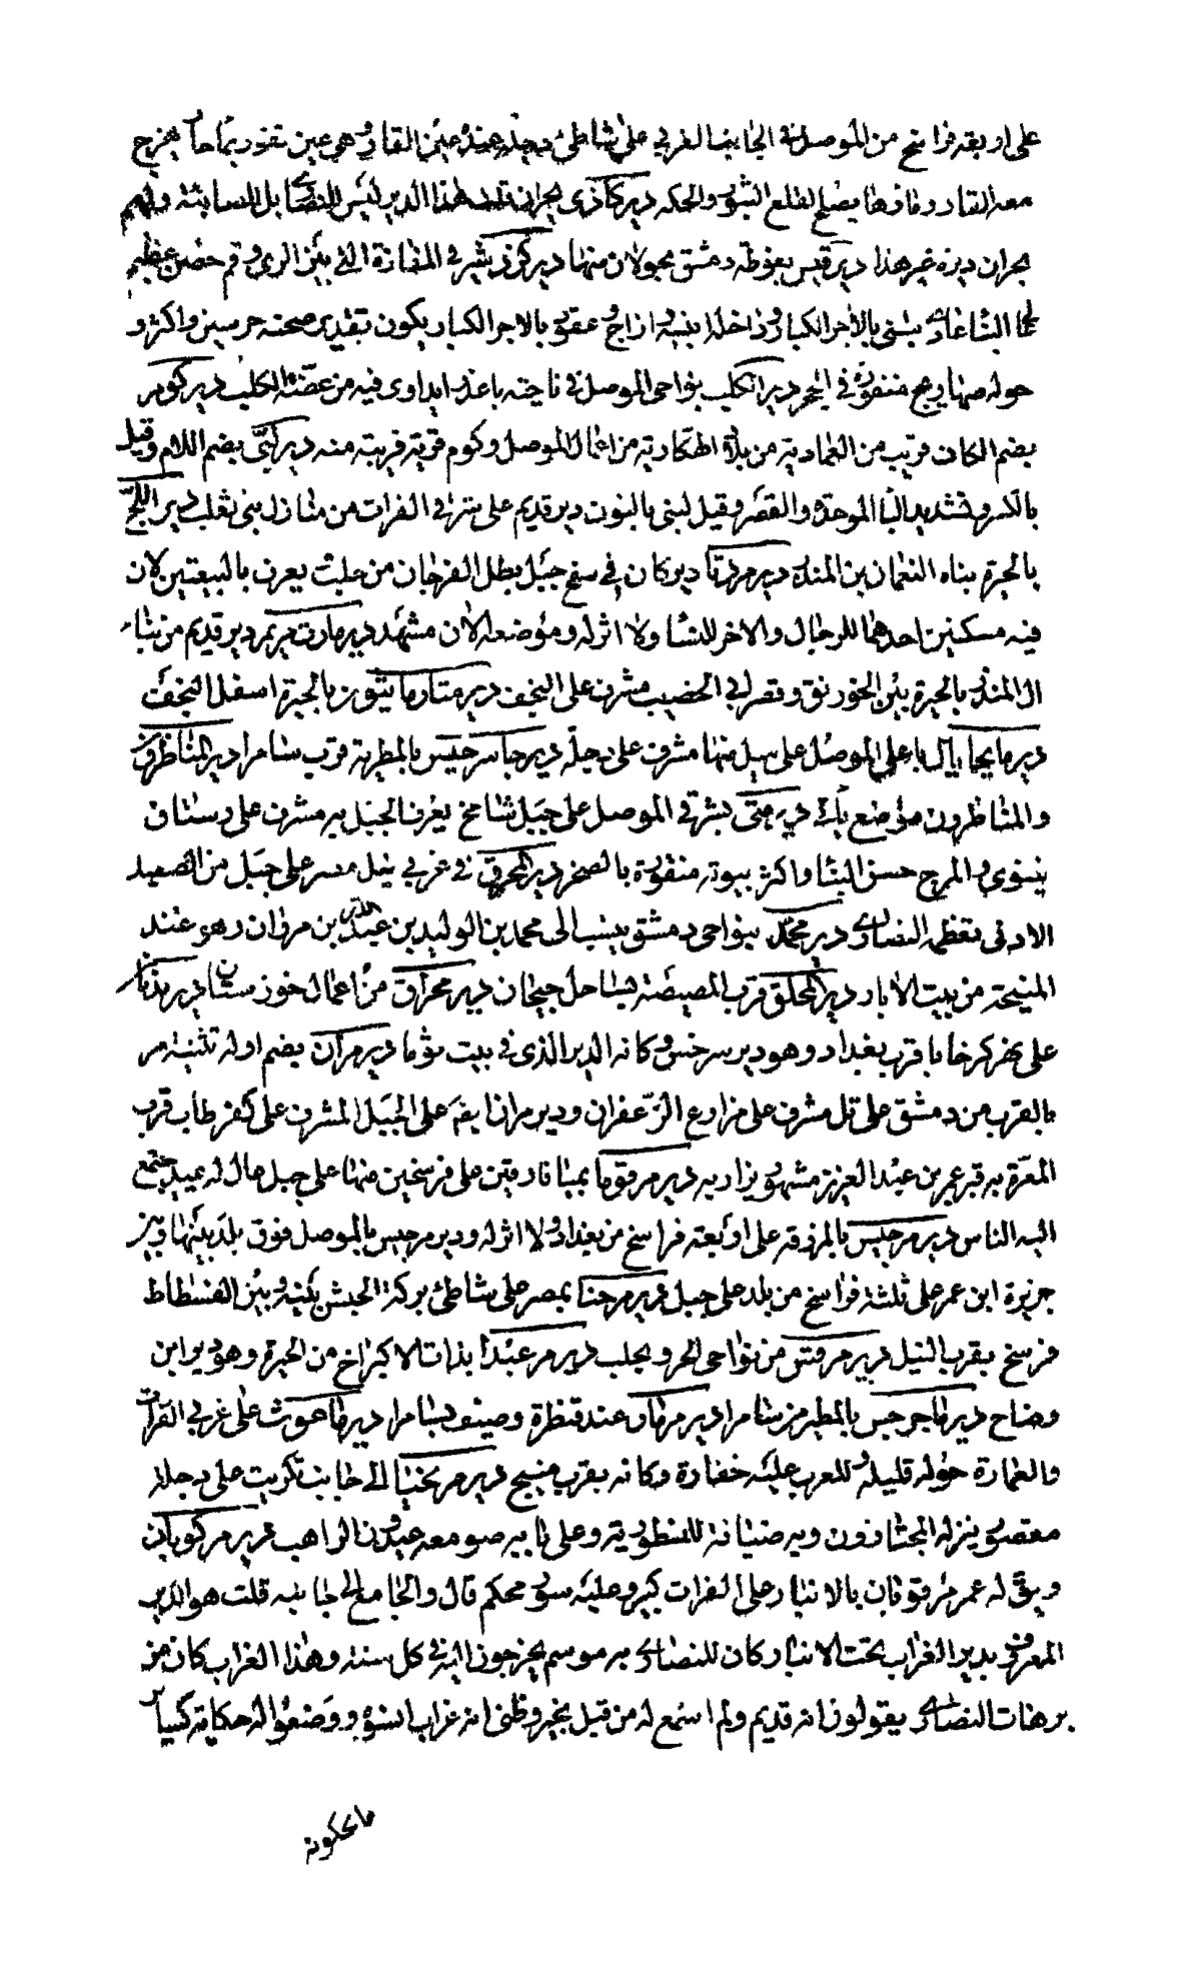 على اربعة فراسخ من الموصل في الجانب الغربي على شاطئ دجلة عنده عين القار وهي عين تفور بماء حار يخرج
معه القار وماؤها يصلح لقلع البثور والحكه دير كاذى بحران قلت هذا الدير ليس للنصارى بل للصابئة ولهم
بحران ديرة غير هذا دير قيس بغوطة دمشق بجولان منها دير كردشير في المفازة التي بين الرى وقم حصن عظيم
البناء عادى بنى بالاجر الكبار وداخله ابنيه وازاج وعقود بالاجر الكبار يكون تقدير صحنه جريبين واكثر و
حوله صهاريج منقورة في الحجر دير الكلب بنواحى الموصل في ناحية باعذرا يداوى فيه من عضه الكلب دير كوم
بضم الكاف قريب من العمادية من بلاد الهكارية من اعمال الموصل وكوم قرية قريبة منه دير لبى بضم اللام وقيل
بالكسر وتشديد البا الموحدة والقصر وقيل لبنى بالنون دير قديم على شرقي الفرات من منازل بنى تغلب دير اللج
بالحيرة بناه النعمان بن المنذر دير مارت دير كان في سفح جبل يطل العرجان من حلب يعرف بالبيعتين لان
فيه مسكنين احدهما للرجال والاخر للنسا ولا اثر له وموضعه الان مشهد دير مارت مريم دير قديم من بناء
ال المنذر بالحيرة بين الخورنق وقصر ابي الخصيب مشرف على النجف دير متى بالحيرة اسفل النجف
دير مايخايال باعلى الموصل على ميل منها مشرف على دجلة دير ماسرجيس بالمطيرة قرب سامرا دير الناظرون
والمناظرون مواضع دير متى بشرقي الموصل على جبل شامخ يعرف الجبل به مشرف على رستاق
نينوى والمرج حسن البناء واكثر بيوته منقورة بالصخر دير المحرق في غربي نيل مصر على جبل من الصعيد
الادنى تعظمه النصارى دير محمد بنواحى دمشق ينسب الى محمد بن الوليد بن عبد الملك بن مروان وهو عند
المنيحة من بيت الابار دير المحلق قرب المصيصة بساحل جيحان دير محراق من اعمال خوزستان دير مديان
على نهر كرخايا قرب بغداد وهو دير سرجس وكانه الدير الذى في بيت سوما دير مران بضم اوله تثنية مر
بالقرب من دمشق على تل مشرف على مزارع الزعفران ودير مران ايضا على الجبل المشرف على كفر طاب قرب
المعرة به قبر عمر بن عبد العزيز مشهور يزار به دير مرقوما بميافارقين على فرسخين منها على جبل عال له عيد يجتمع
اليه الناس دير مرجيس بالمزرفة على اربعة فراسخ من بغداد ولا اثر له ودير مرجيس بالموصل فوق بلد بينها وبين
جزيرة ابن عمر على ثلثة فراسخ من بلد على جبل دير مرحنا بمصر على شاطئ بركة الحبش بينه وبين الفسطاط
فرسخ بقرب النيل دير مرقس من نواحى الجزر وبحلب دير مر عبدا بذات الاكيراخ من الحيرة وهو دير ابن
وضاح دير مارجرجس بالمطيرة من سامرا دير مرمار عند قنطرة وصيف بسامرا دير ماهوث على غربي الفرات
والعمارة حوله قليلة وللعرب عليه خفارة وكانه بقرب منبج دير مر يحنا الى جانب تكريت على دجلة
معمور ينزله المجتازون وبه ضيافة للنسطورية وعلى بابه صومعة عبدون الراهب دير مر كوبان
ويق له عمر مرقوفان بالانبار على الفرات كبير وعليه سور محكم قال والجامع الى جانبه قلت هو الدير
المعروف بدير الغراب تحت الانبار كان للنصارى به موسم يخرجون اليه في كل سنة وهذا الغراب كان من
برهنات النصارى يقولون انه قديم ولم اسمع له من قبل بخبر وظنى انه غراب اسود ووضعوا له حكاية كسائر
ما يحكونه